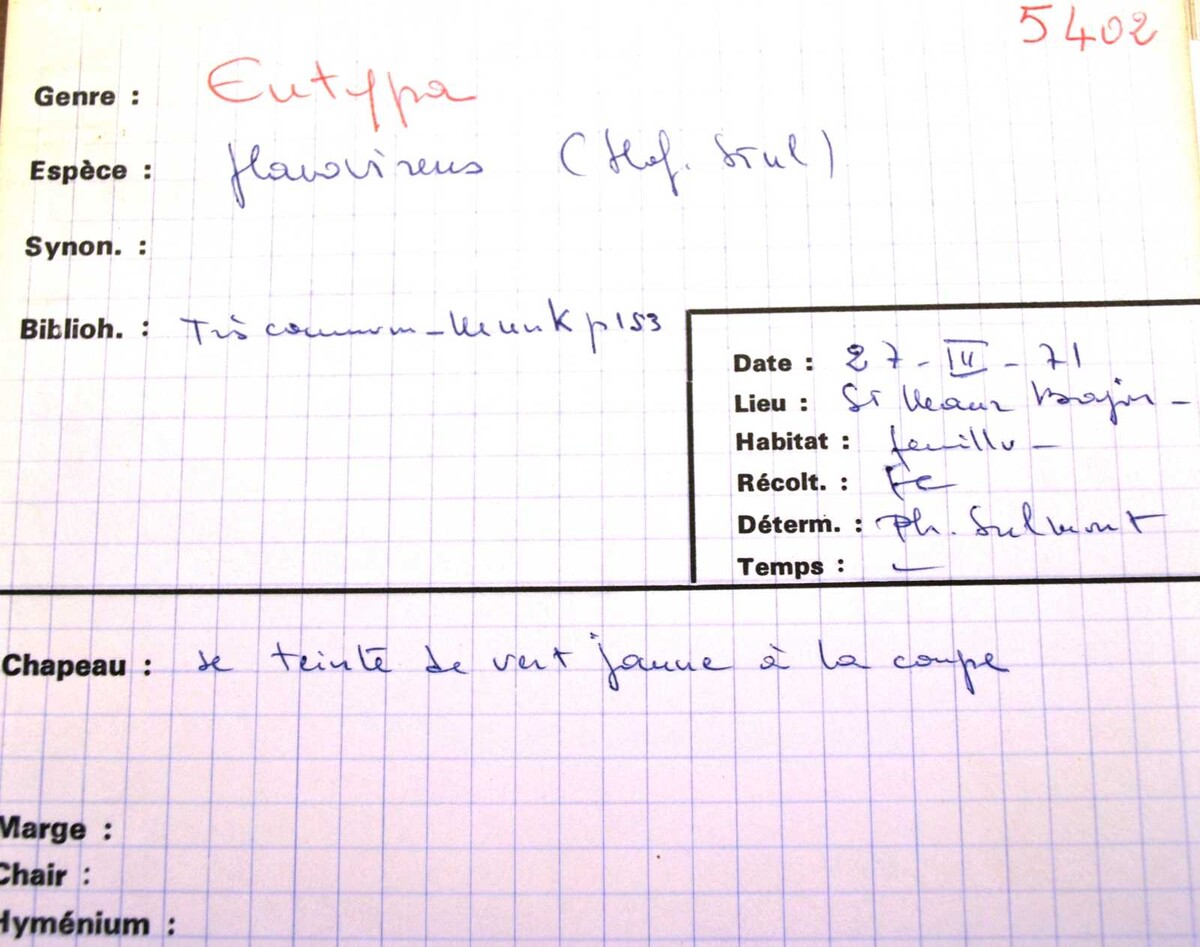 5402
Genre : Eutypa
Espèce : flavovirens (Hof. Tul)
Synon. :
Biblioh. : Très commun - Munk p 153
Date : 27 - III - 71
Lieu : St
Habitat : feuillu -
Récolt. :
Déterm. : Ph. Sulmont
Temps : —
Chapeau : se teinte de vert jaune à la coupe
Marge :
Chair :
Hyménium :